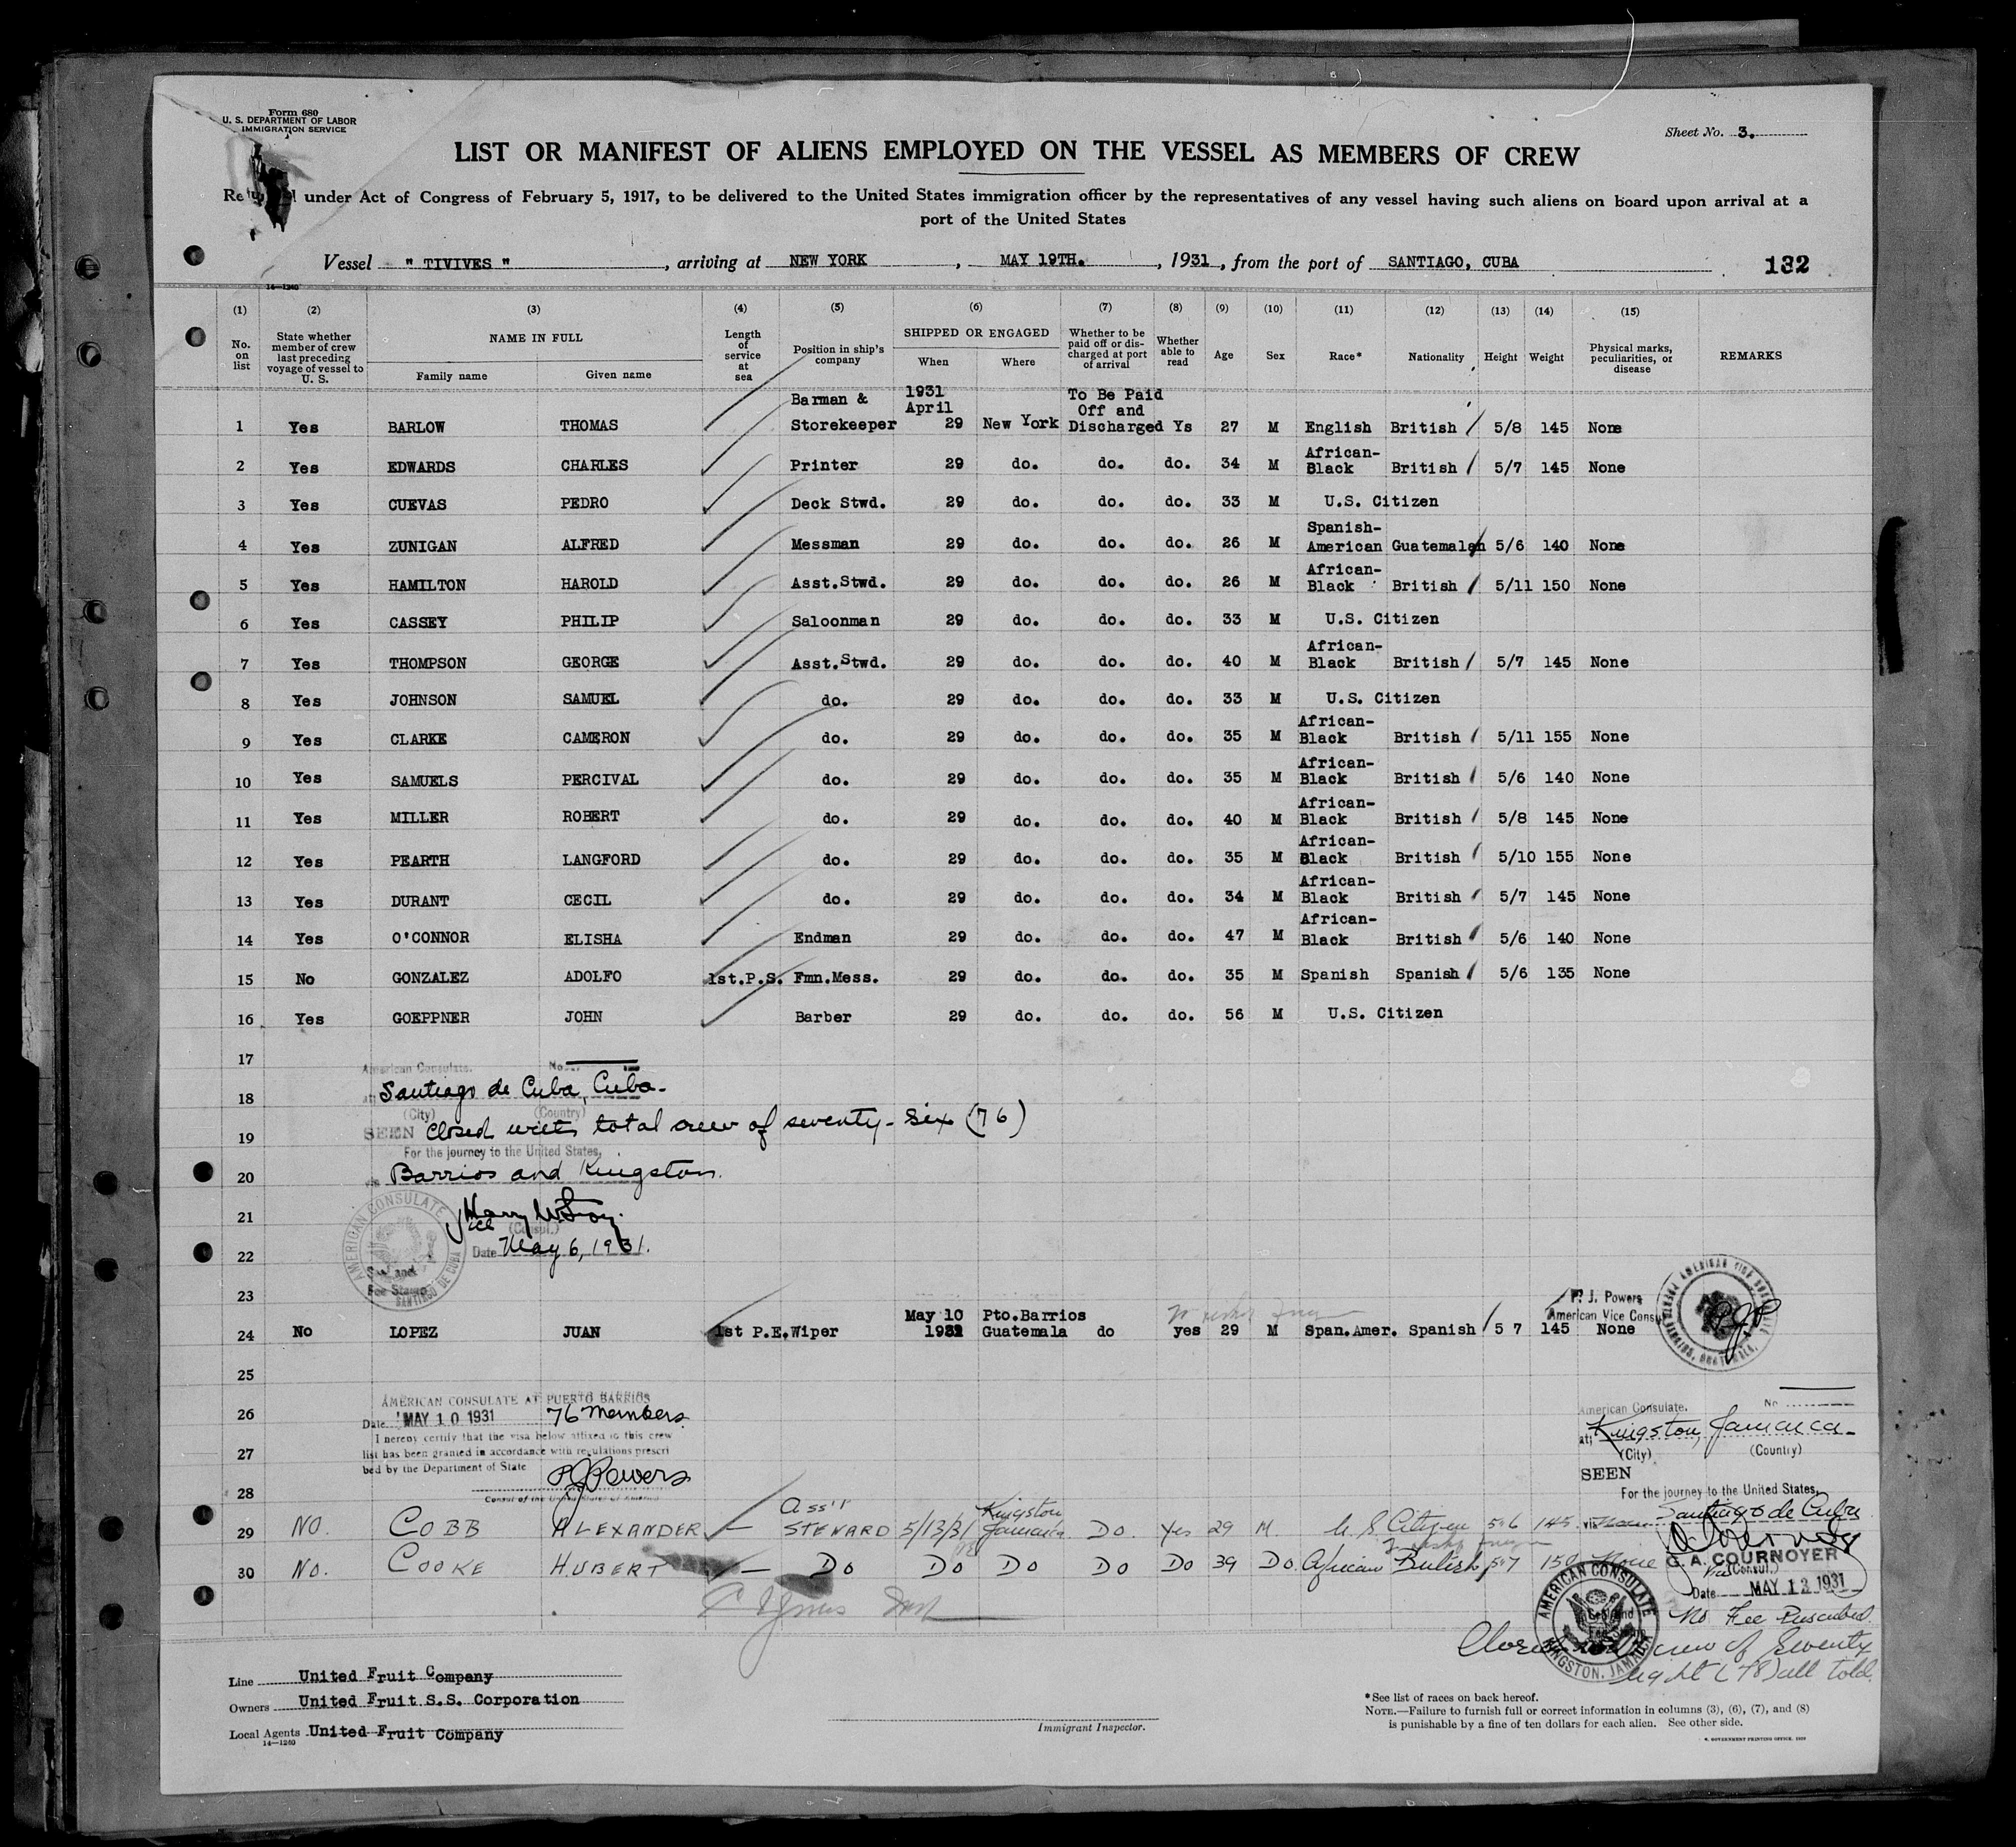 Form 680
U. S. DEPARTMENT OF LABOR
IMMIGRATION SERVICE
Sheet No. 3.
LIST OR MANIFEST OF ALIENS EMPLOYED ON THE VESSEL AS MEMBERS OF CREW
under Act of Congress of February 5, 1917, to be delivered to the United States immigration officer by the representatives of any vessel having such aliens on board upon arrival at a
port of the United States
Vessel " TIVIVES ", arriving at NEW YORK, MAY 19TH., 1931, from the port of SANTIAGO, CUBA 132
14—1240
(1) (2) (3) (4) (5) (6) (7) (8) (9) (10) (11) (12) (13) (14) (15)
No. on list State whether member of crew last preceding voyage of vessel to U. S. NAME IN FULL Family name Given name Length of service at sea Position in ship's company SHIPPED OR ENGAGED When Where Whether to be paid off or discharged at port of arrival Whether able to read Age Sex Race* Nationality Height Weight Physical marks, peculiarities, or disease REMARKS
1 Yes BARLOW THOMAS Barman & Storekeeper 1931 April 29 New York To Be Paid Off and Discharged Ys 27 M English British 5/8 145 None
2 Yes EDWARDS CHARLES Printer 29 do. do. do. 34 M African-Black British 5/7 145 None
3 Yes CUEVAS PEDRO Deck Stwd. 29 do. do. do. 33 M U.S. Citizen
4 Yes ZUNIGAN ALFRED Messman 29 do. do. do. 26 M Spanish-American Guatemalan 5/6 140 None
5 Yes HAMILTON HAROLD Asst.Stwd. 29 do. do. do. 26 M African-Black British 5/11 150 None
6 Yes CASSEY PHILIP Saloonman 29 do. do. do. 33 M U.S. Citizen
7 Yes THOMPSON GEORGE Asst.Stwd. 29 do. do. do. 40 M African-Black British 5/7 145 None
8 Yes JOHNSON SAMUEL do. 29 do. do. do. 33 M U.S. Citizen
9 Yes CLARKE CAMERON do. 29 do. do. do. 35 M African-Black British 5/11 155 None
10 Yes SAMUELS PERCIVAL do. 29 do. do. do. 35 M African-Black British 5/6 140 None
11 Yes MILLER ROBERT do. 29 do. do. do. 40 M African-Black British 5/8 145 None
12 Yes PEARTH LANGFORD do. 29 do. do. do. 35 M African-Black British 5/10 155 None
13 Yes DURANT CECIL do. 29 do. do. do. 34 M African-Black British 5/7 145 None
14 Yes O'CONNOR ELISHA Endman 29 do. do. do. 47 M African-Black British 5/6 140 None
15 No GONZALEZ ADOLFO 1st.P.S. Fmn.Mess. 29 do. do. do. 35 M Spanish Spanish 5/6 135 None
16 Yes GOEPPNER JOHN Barber 29 do. do. do. 56 M U.S. Citizen
17 American Consulate. No.
18 at Santiago de Cuba, Cuba.
(City) (Country)
19 SEEN Closed with total crew of seventy-six (76)
For the journey to the United States,
20 via Barrios and Kingston.
21 Harry W. Vice (Consul.)
22 Date May 6, 1931.
AMERICAN CONSULATE SANTIAGO DE CUBA
Seal and
Fee Stamp
23
P. J. Powers
American Vice Consul
24 No LOPEZ JUAN 1st P.E. Wiper May 10 1931 Pto.Barrios Guatemala do yes 29 M Span.Amer. Spanish 5 7 145 None
25
AMERICAN CONSULATE AT PUERTO BARRIOS
26 Date MAY 10 1931 76 Members
I hereby certify that the visa below affixed to this crew
27 list has been granted in accordance with regulations prescri
bed by the Department of State
PJPowers
28 Consul of the United States of America
American Consulate. No
at Kingston, Jamaica
(City) (Country)
SEEN
For the journey to the United States,
via Santiago de Cuba
29 NO. COBB ALEXANDER — Ass't STEWARD 5/13/31 Kingston Jamaica DO Yes 29 M U.S Citizen 5-6 145
30 No. COOKE HUBERT — DO DO DO DO DO 39 DO. African British 5-7 150 None
C. A. COURNOYER
Vice (Consul.)
Date MAY 13 1931
AMERICAN CONSULATE
KINGSTON, JAMAICA
No Fee Prescribed
Closed crew of Seventy
eight (78) all told
Line United Fruit Company
Owners United Fruit S.S. Corporation
Local Agents United Fruit Company
14—1240
Immigrant Inspector.
*See list of races on back hereof.
NOTE.—Failure to furnish full or correct information in columns (3), (6), (7), and (8)
is punishable by a fine of ten dollars for each alien. See other side.
GOVERNMENT PRINTING OFFICE